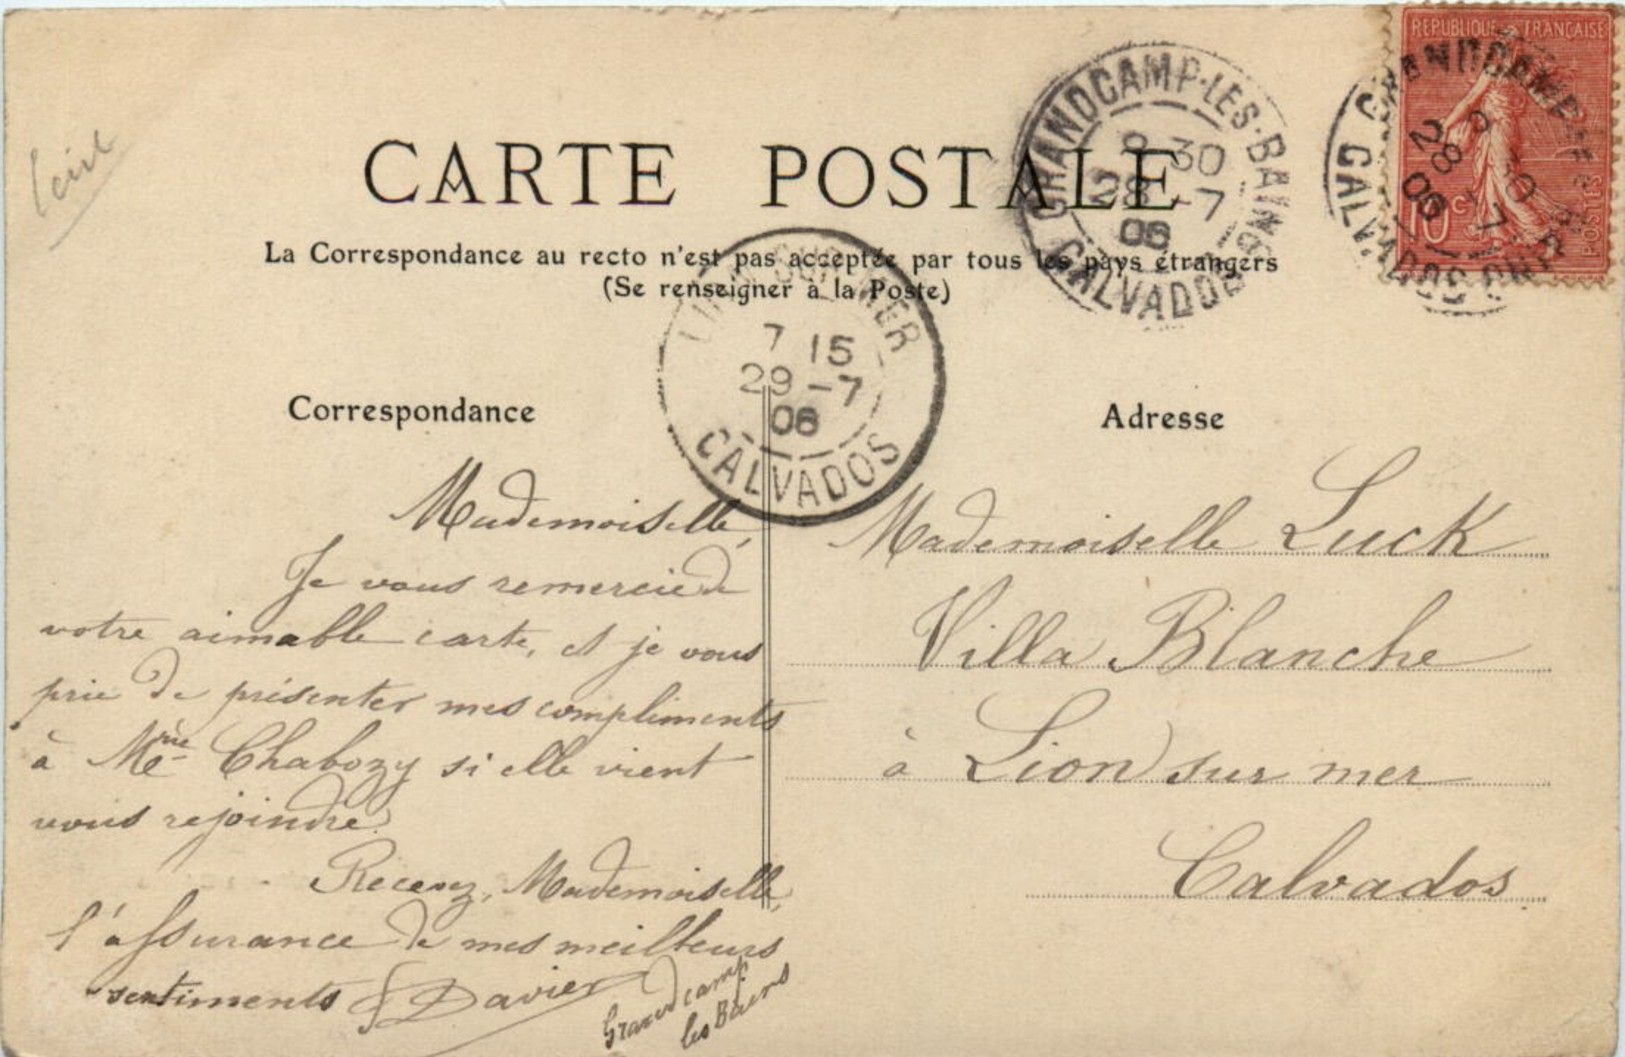 RÉPUBLIQUE FRANÇAISE
10 c
POSTES
GRANDCAMP-LES-BAINS
30
28 -7
06
CALVADOS
CARTE POSTALE
La Correspondance au recto n'est pas acceptée par tous les pays étrangers
(Se renseigner à la Poste)
SUR MER
7 15
29 -7
06
CALVADOS
Correspondance
Mademoiselle,
Je vous remercie de
votre aimable carte, et je vous
prie de présenter mes compliments
à Mme Chabozy si elle vient
vous rejoindre.
Recevez, Mademoiselle,
l'assurance de mes meilleurs
sentiments Davier
Grandcamp
les Bains
Adresse
Mademoiselle Luck
Villa Blanche
à Lion sur mer
Calvados